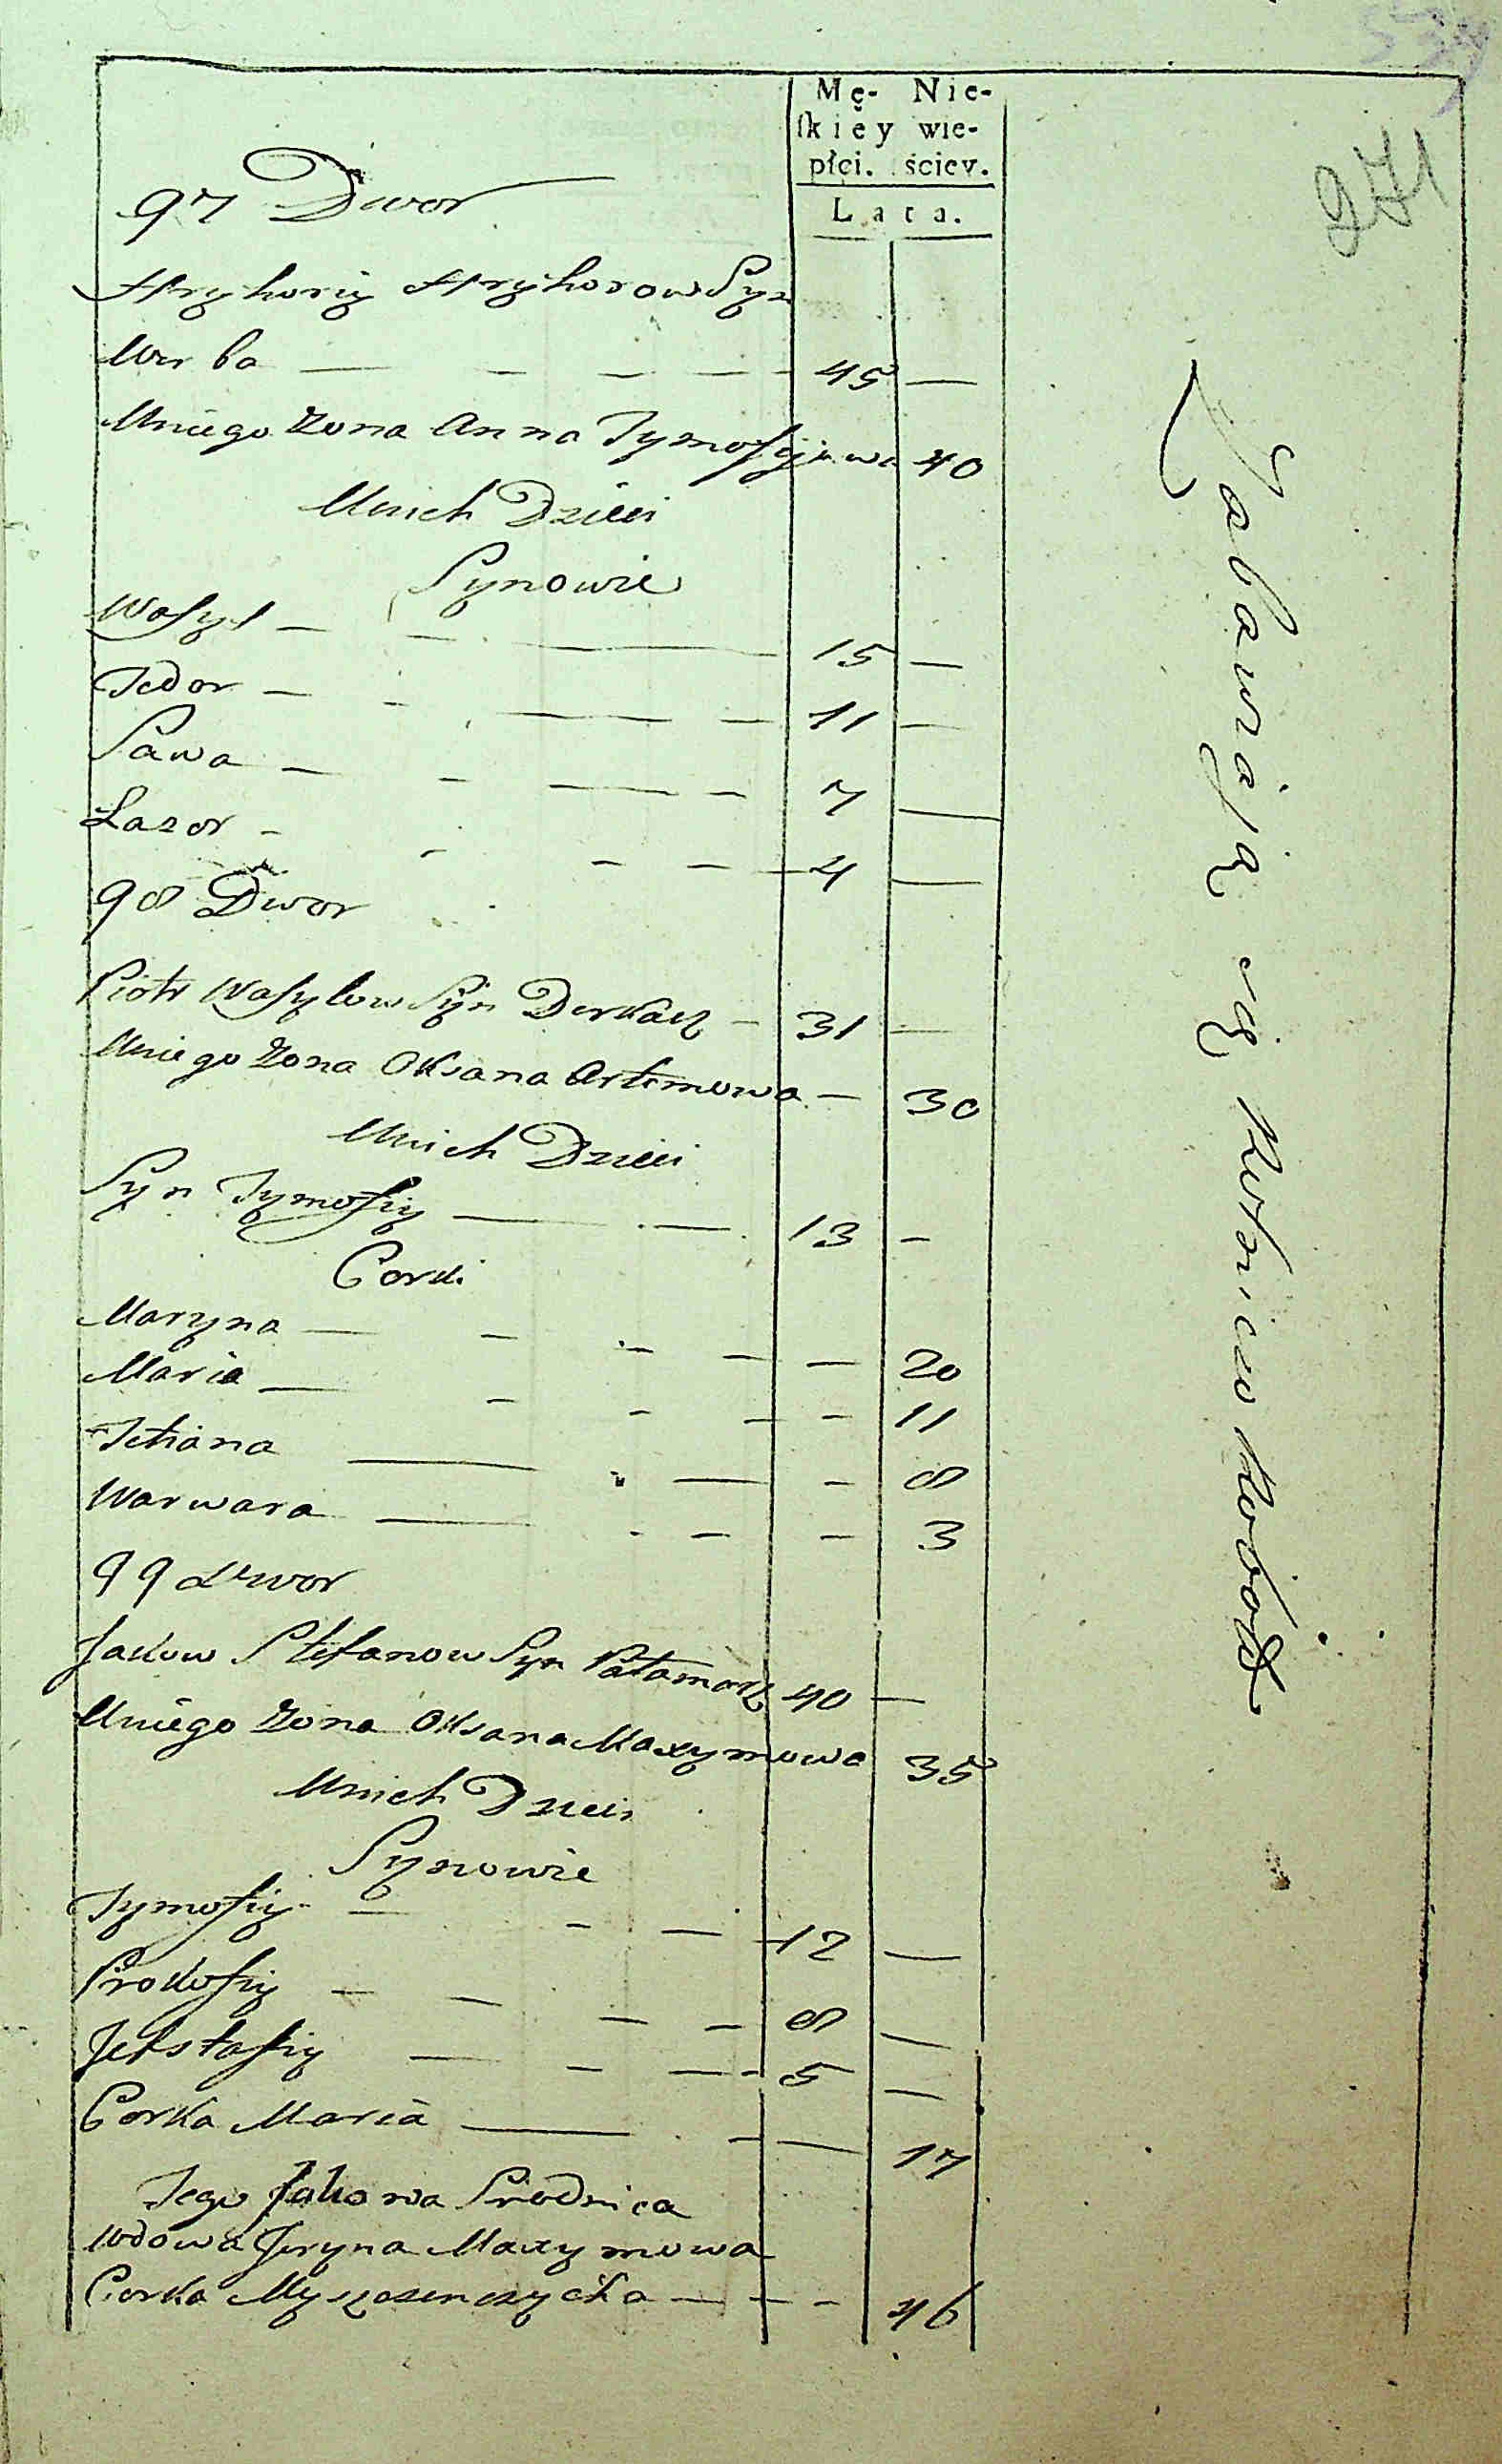 271
Mę- Nie-
skiey wie-
płci. ściey.
Lata.
97 Dwor
Hryhoriy Hryhorow Syn
Wer ba — — — — 45 —
Uniego Zona Anna Tymofijewa 40
Unich Dzieci
Synowie
Wasyl — — — 15 —
Fedor — - — — 11 —
Sawa — - — — 7 —
Łazor - - — — 4 —
98 Dwor
Piotr Wasylow Syn Derkacz — 31 —
Uniego Zona Oksana Artemowa — 30
Unich Dzieci
Syn Tymofiy — — 13 —
Corki
Maryna — - - — — 20
Maria — - - — - 11
Tetiana — — - 8
Warwara — - — - 3
99 Dwor
Jakow Stefanow Syn Patamarz 40 —
Uniego Zona Oksana Maxymowa 35
Unich Dzieci
Synowie
Tymofiy — - — 12 —
Prokofiy — — — — 8 —
Jewstafiy — - — - 5 —
Corka Maria — - — 17
Tego Jakowa
Wdowa Jryna Maxymowa
Corka — — - 46
Zabawiaią się Rolnictwem